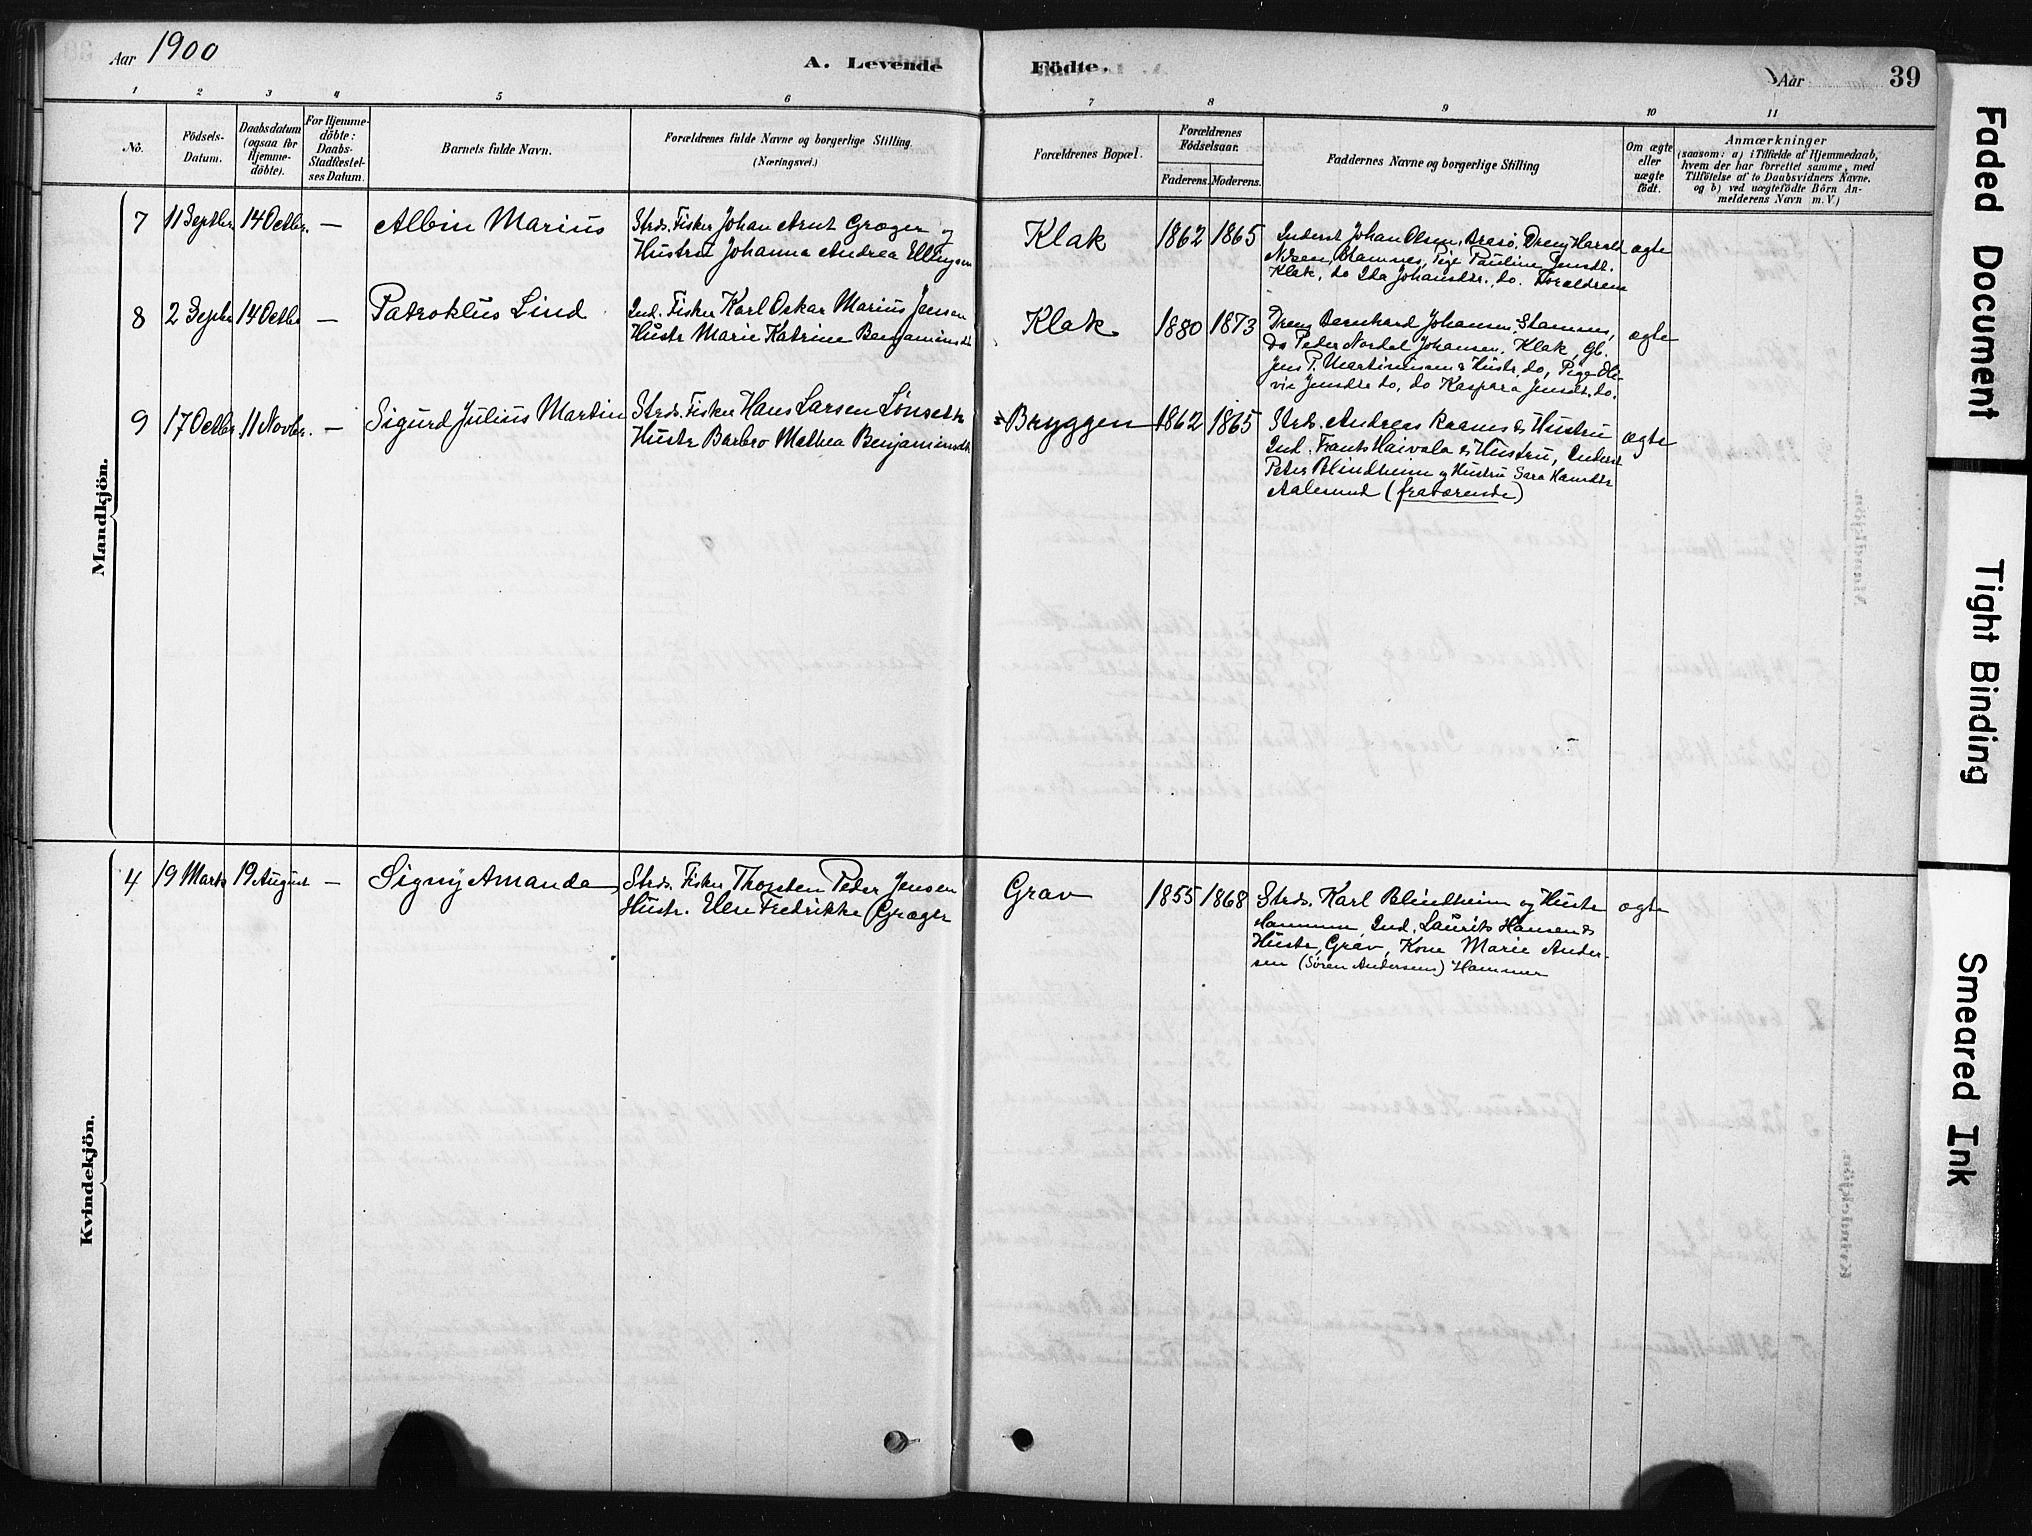 Aar 1900
A. Levende Fødte.
Aar 39
1 2 3 4 5 6 7 8 9 10 11
No.
Födsels-
Datum.
Daabsdatum
(ogsaa for
Hjemme-
döbte).
For Hjemme-
döbte:
Daabs-
Stadfæstel-
ses Datum.
Barnets fulde Navn.
Forældrenes fulde Navne og borgerlige Stilling.
(Næringsvei.)
Forældrenes Bopæl.
Forældrenes
Födselsaar.
Faderens. Moderens.
Faddernes Navne og borgerlige Stilling
Om ægte
eller
uægte
födt.
Anmærkninger
(saasom: a) i Tilfælde af Hjemmedaab,
hvem der har forrettet samme, med
Tilföielse af to Daabsvidners Navne.
og b) ved uægtefödte Börn An-
melderens Navn m. V.)
Mandkjön.
7 11 Septbr. 14 Octbr. — Albin Marius
Strds. Fisker Johan Arnt Græger og
Hustru Johanna Andrea Ellingsen
Klak 1862 1865
Inderst Johan Olsen, Dreng Harald
Nilsen, Stamnes, Pige Pauline Jensdt.
Klak, do Ida Johansdtr., do. Forældrene
ægte
8 2 Septbr 14 Octbr —
Patroklus Lind
Ind. Fisker Karl Oskar Marius Jensen
Hustr Marie Katrine Benjaminsdt
Klak 1880 1873
Dreng Bernhard Johansen, Stamnes,
do Peder Nordal Johansen, Klak, Gb.
Jens P. Martinussen & Hustr. do, Pige Oli-
vie Jensdtr do, do Kaspara Jensdt. do.
ægte
9 17 Octbr 11 Novbr. — Sigurd Julius Martin
Strds. Fisker Hans Larsen Lønseth
Hustr Barbro Mathea Benjaminsdt
Bryggen 1862 1865
Strds. Andreas Ravnes & Hustru
Ind. Frants Haivala & Hustru, Inderst
Peter Blindheim og Hustru Sara Hansdtr
Aalesund (fraværende)
ægte
Kvindekjön.
4 19 Marts 19 August — Signy Amanda
Strds. Fisker Thorsten Peder Jensen
Hustr. Else Fredrikke (Græger
Grav 1855 1868
Strds. Karl Blindheim og Hustr
Hammer, Ind. Laurits Hansen &
Hustr, Grav, Kone Marie Ander-
sen (Søren Andersens) Hammer
ægte
Faded Document
Tight Binding
Smeared Ink